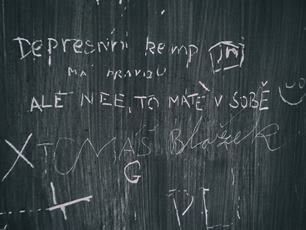 Depresivní kemp
má pravdu
ALE NEE, TO MÁTE V SOBĚ
X TOMÁŠ Blažek
G